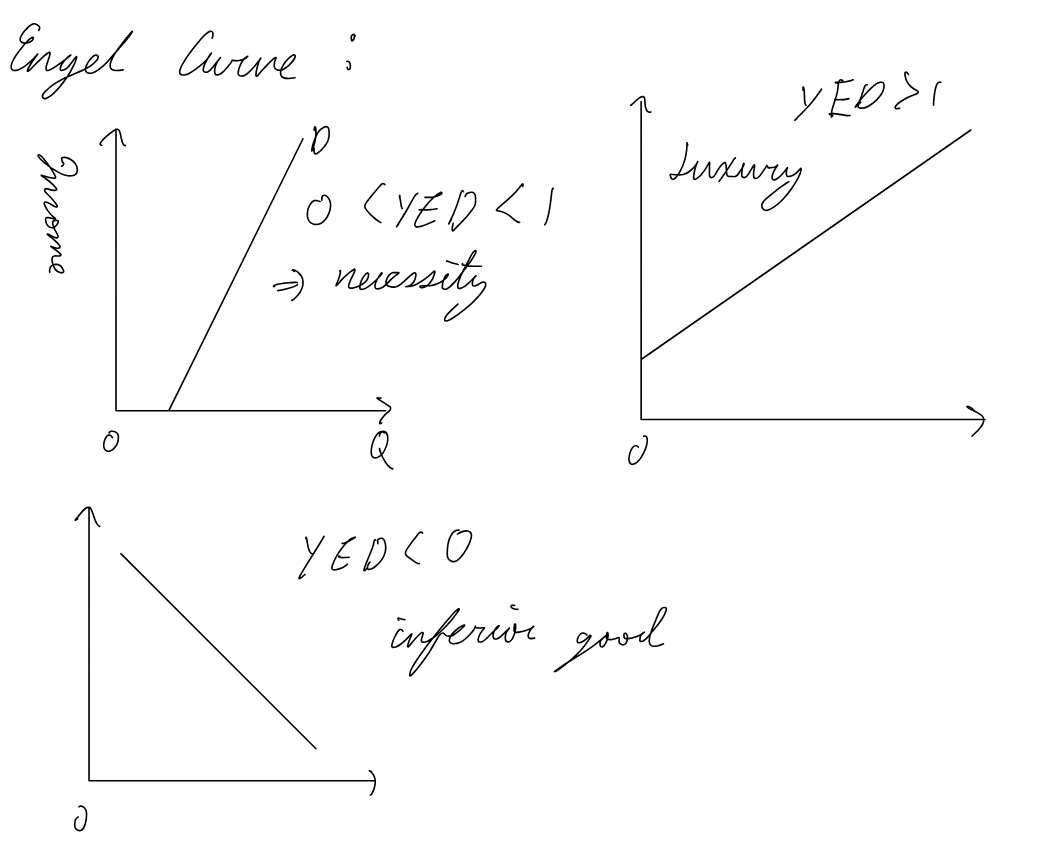 Engel Curve :
Income
D
0 < YED < 1
⇒ necessity
0
Q
YED > 1
Luxury
0
YED < 0
inferior good
0